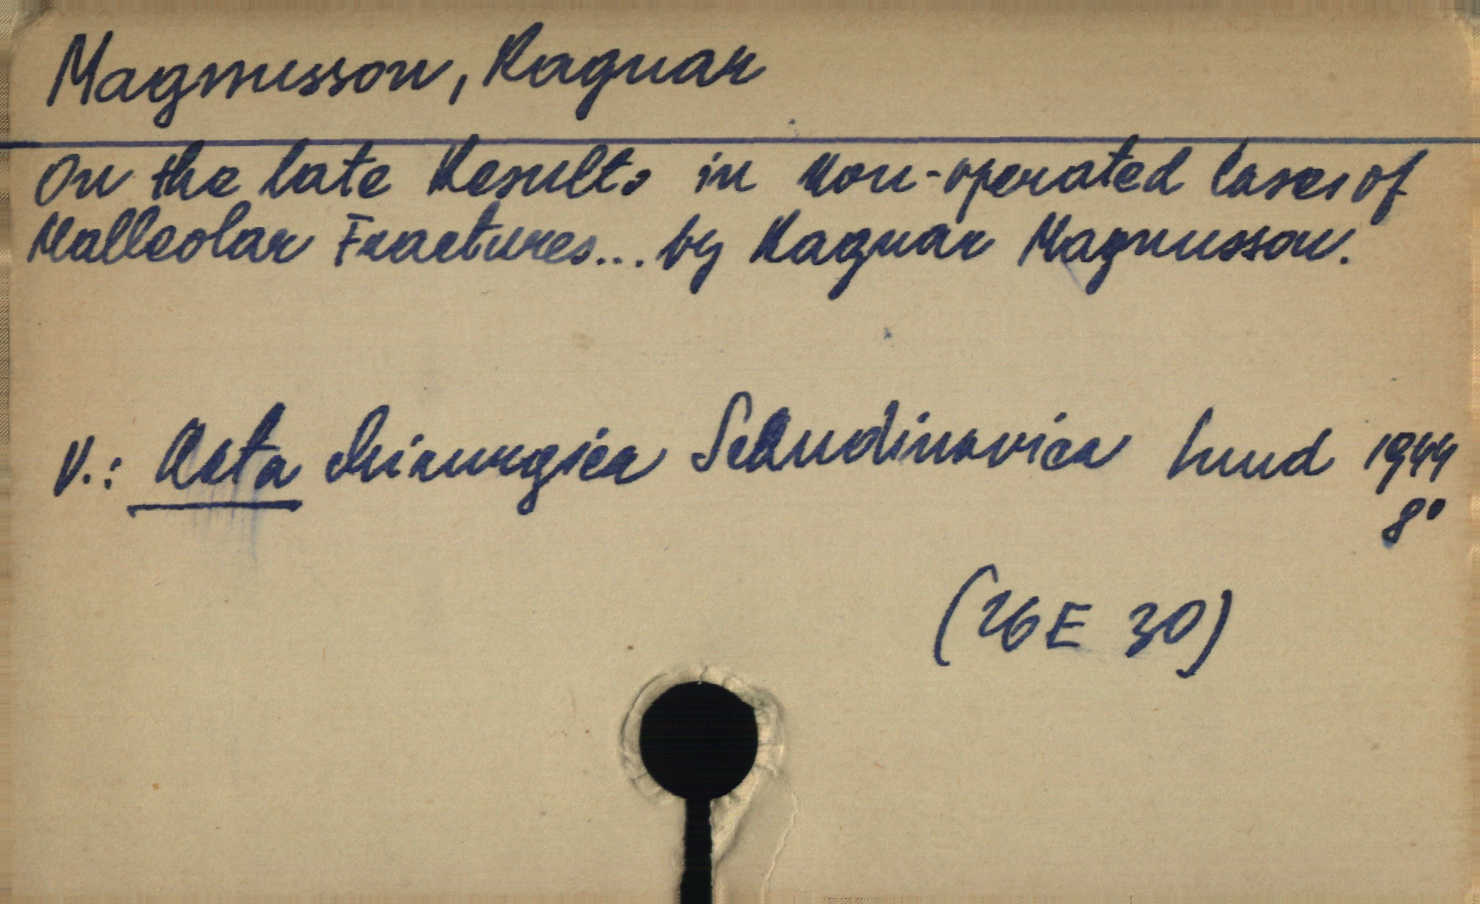 Magnusson, Ragnar
On the late Results in Non-operated Cases of
Malleolar Fractures... by Ragnar Magnusson.
V.: Acta Chirurgica Scandinavica Lund 1944
8°
(26E 30)